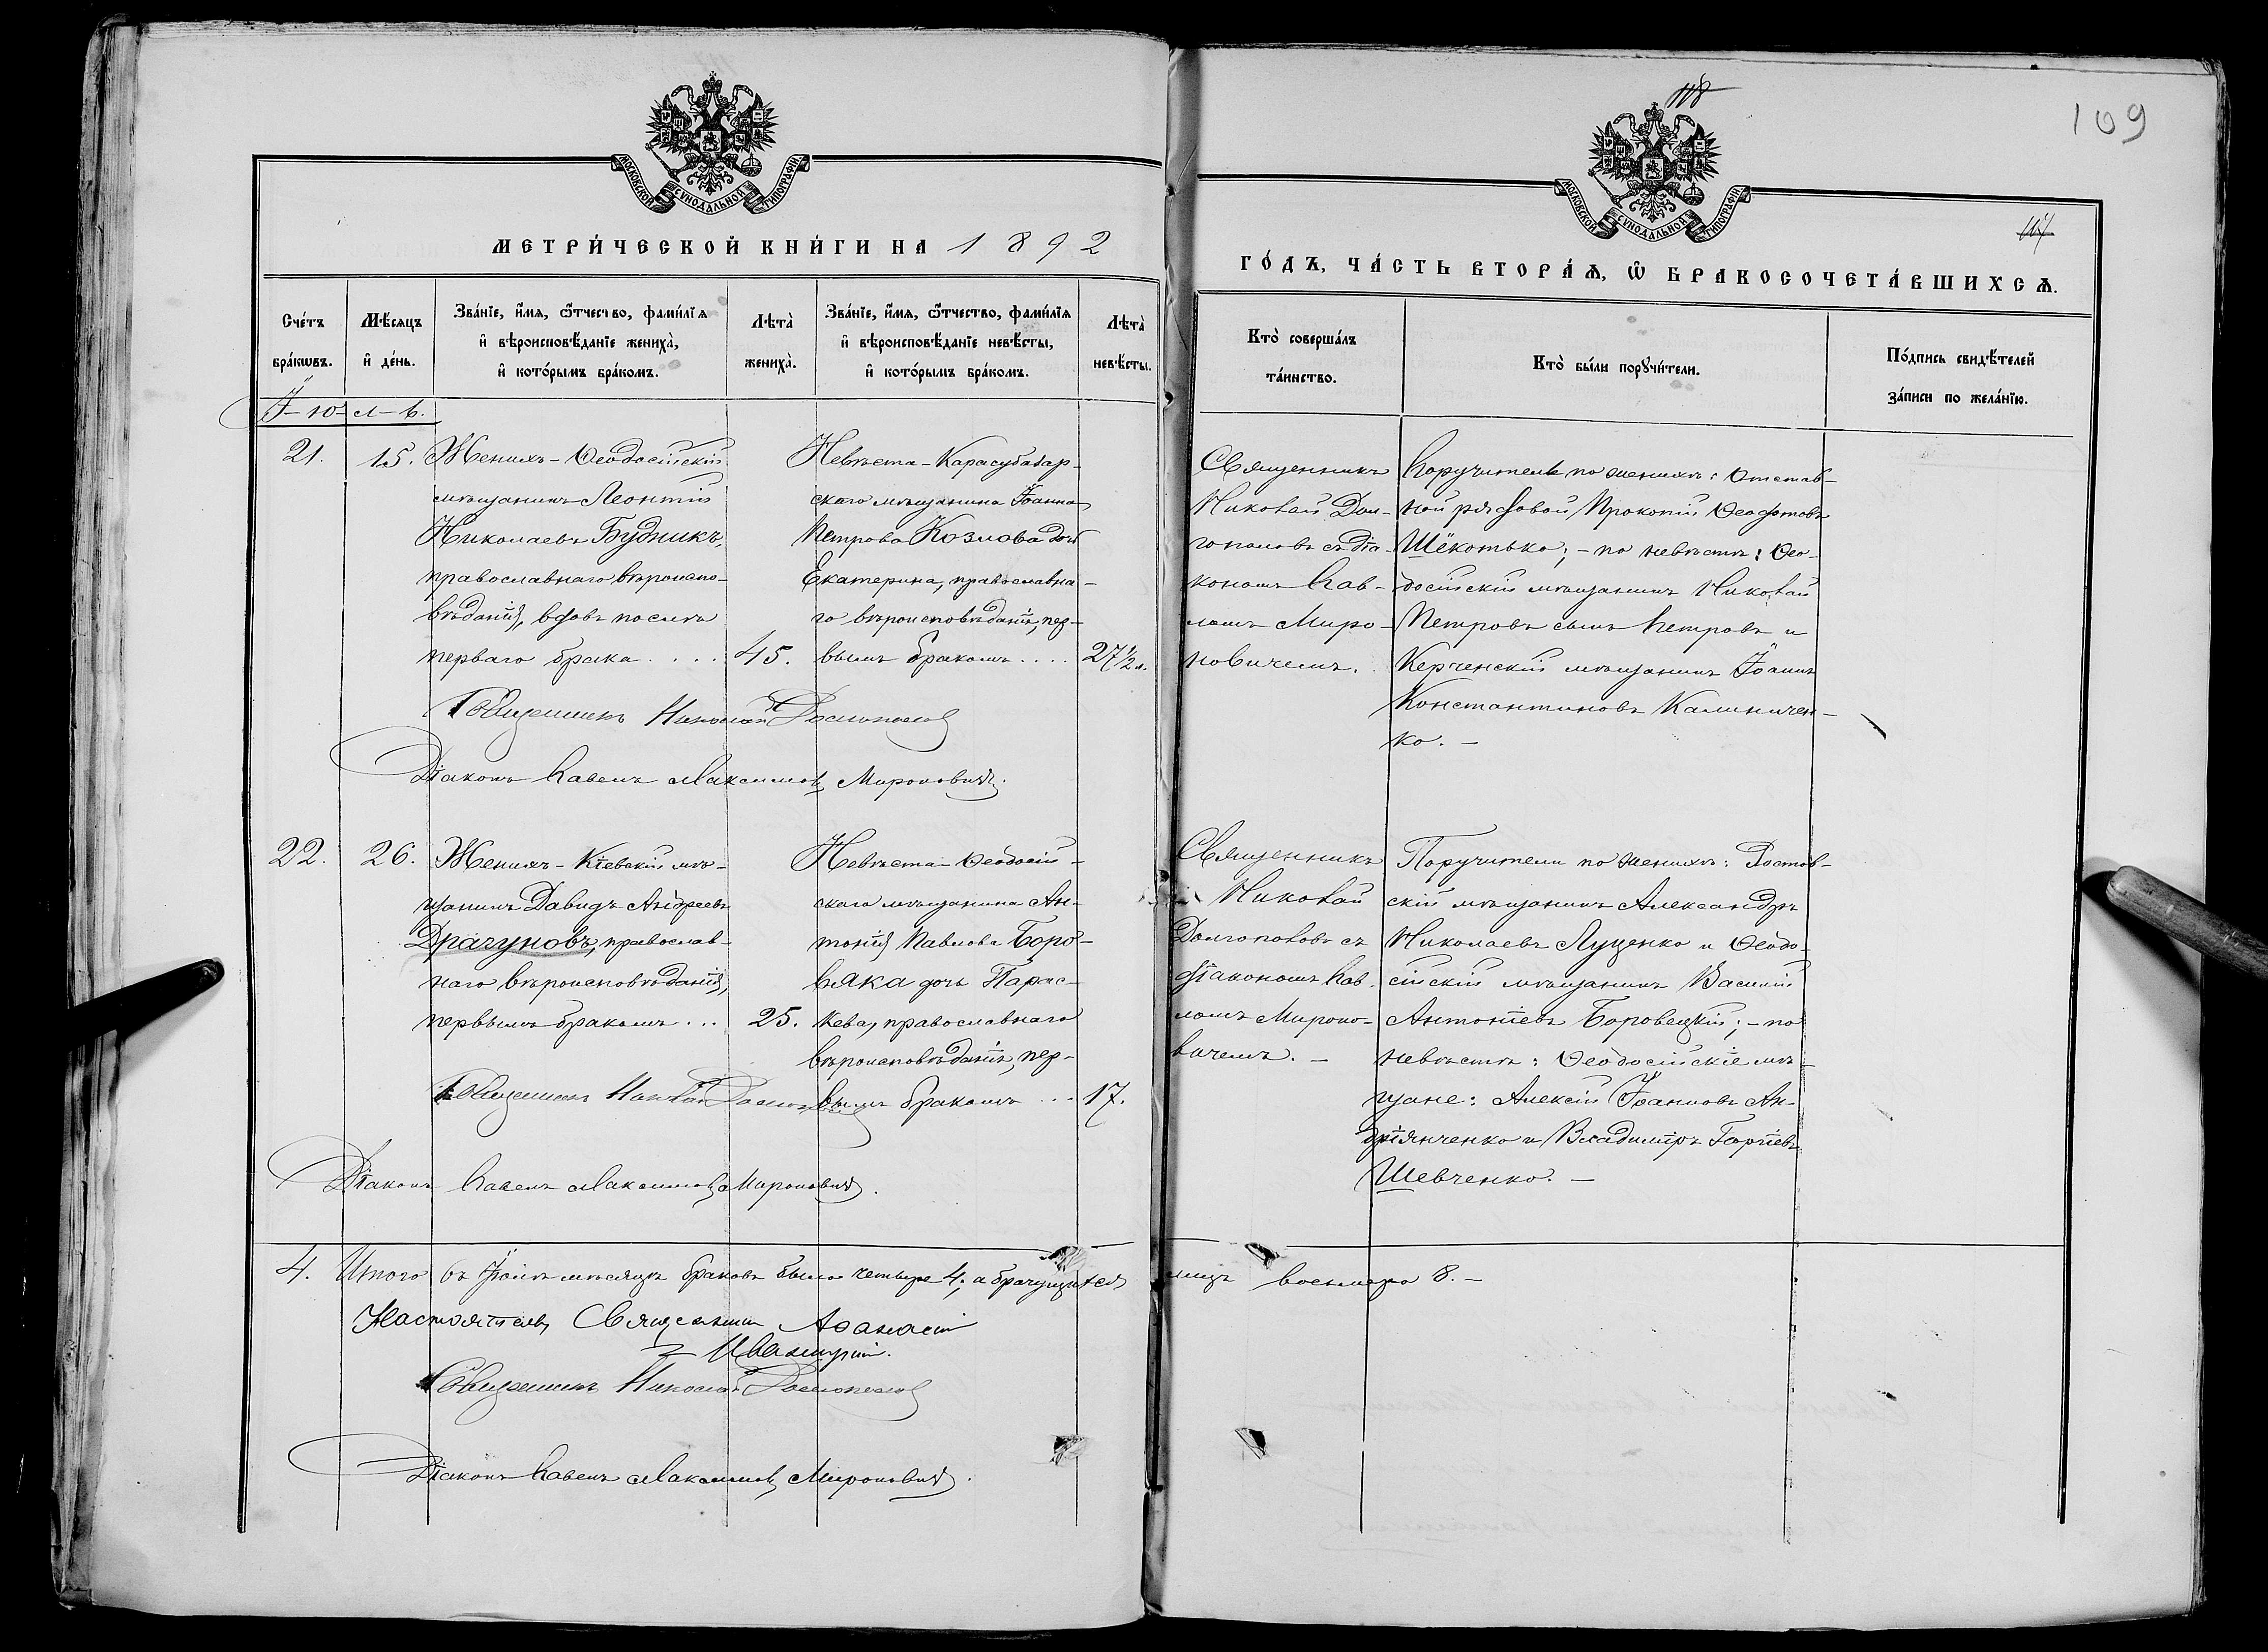 118
109
117
МОСКОВСКОЙ СѴНОДАЛЬНОЙ ТИПОГРАФІИ
МОСКОВСКОЙ СѴНОДАЛЬНОЙ ТИПОГРАФІИ
МЕТРИ́ЧЕСКОЙ КНИ́ГИ НА 1892
ГО́ДЪ, ЧА́СТЬ ВТОРА́Ѧ, Ѡ҆ БРАКОСОЧЕТА́ВШИХСѦ.
Сче́тъ бра́кѡвъ.
Мѣ́сѧцъ и҆ де́нь.
Зва́нїе, и҆́мѧ, ѻ҆́тчество, фами́лїѧ и҆ вѣроисповѣ́данїе жениха̀, и҆ кото́рымъ бра́комъ.
Лѣта̀ жениха̀.
Зва́нїе, и҆́мѧ, ѻ҆́тчество, фами́лїѧ и҆ вѣроисповѣ́данїе невѣ́сты, и҆ кото́рымъ бра́комъ.
Лѣта̀ невѣ́сты.
Кто̀ соверша́лъ та́инство.
Кто̀ бы́ли порꙋчи́тели.
По́дпись свидѣ́телей за́писи по жела́нїю.
І-ю-л-ь.
21.
15.
Женихъ - Ѳеодосійскій
мѣщанинъ Леонтій
Николаевъ Будникъ,
православнаго вѣроиспо-
вѣданія, вдовъ послѣ
перваго брака....
45.
Невѣста - Карасубазар-
скаго мѣщанина Іоанна
Петрова Козлова дочь
Екатерина, православна-
го вѣроисповѣданія, пер-
вымъ бракомъ....
27 1/2 л.
Священникъ
Николай Дол-
гополовъ съ діа-
кономъ Пав-
ломъ Миро-
новичемъ.
Поручители по женихѣ: Отстав-
ной рядовой Прокопій Ѳеофотовъ
Щёкотько; - по невѣстѣ: Ѳео-
досійскій мѣщанинъ Николай
Петровъ сынъ Петровъ и
Керченскій мѣщанинъ Іоаннъ
Константиновъ Калиничен-
ко. -
Священникъ Николай Долгополов
Діаконъ Павелъ Максимовъ Мироновичъ.
22.
26.
Женихъ - Кіевскій мѣ-
щанинъ Давидъ Андреевъ
Драгуновъ, православ-
наго вѣроисповѣданія,
первымъ бракомъ...
25.
Невѣста - Ѳеодосій-
скаго мѣщанина Ан-
тонія Павлова Боро-
вяка дочь Парас-
кева, православнаго
вѣроисповѣданія, пер-
вымъ бракомъ...
17.
Священникъ
Николай
Долгополовъ съ
діакономъ Пав-
ломъ Мироно-
вичемъ. -
Поручители по женихѣ: Ростов-
скій мѣщанинъ Александръ
Николаевъ Луценко и Ѳеодо-
сійскій мѣщанинъ Василій
Антоніевъ Боровецкій; - по
невѣстѣ: Ѳеодосійскіе мѣ-
щане: Алексій Іоанновъ Ан-
дріянченко и Владиміръ Георгіевъ
Шевченко. -
Священникъ Николай Долгополов
Діаконъ Павелъ Максимовъ Мироновичъ.
4. Итого въ Іюлѣ мѣсяцѣ браковъ было четыре 4; а брачущихся лицъ восьмеро 8. -
Настоятель Священникъ Аѳанасій
Священникъ Николай Долгополов
Діаконъ Павелъ Максимовъ Мироновичъ.